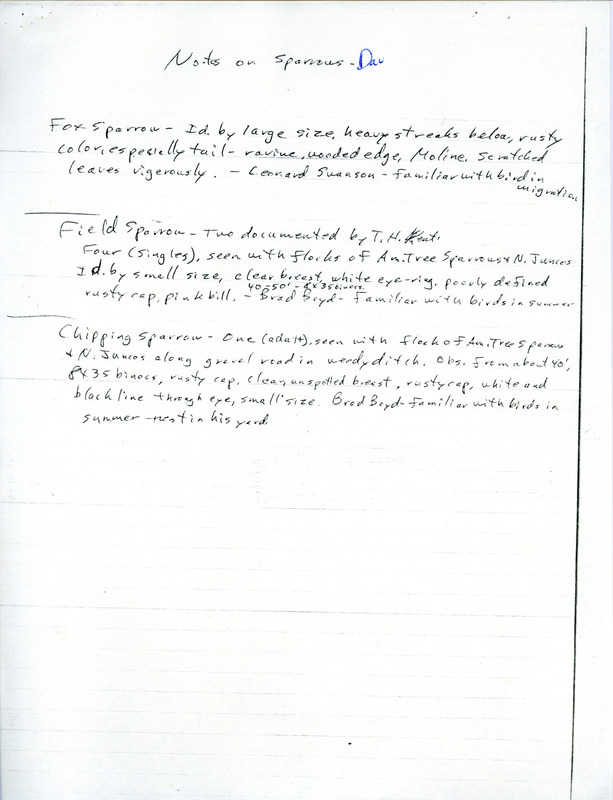 Notes on Sparrows - Dav
Fox Sparrow - Id. by large size, heavy streaks below, rusty
color, especially tail - ravine, wooded edge, Moline. Scratched
leaves vigerously. - Leonard Swanson - familiar with bird in
migration
Field Sparrow - Two documented by T.H. Kent.
Four (singles), seen with flocks of Am. Tree Sparrows & N. Juncos
Id. by small size, clear breast, white eye-ring, poorly defined
40-50' - 8x35 binocs.
rusty cap, pink bill. - Brad Boyd - familiar with birds in summer
Chipping Sparrow - One (adult), seen with flock of Am. Tree Sparrow
& N. Juncos along gravel road in weedy ditch. Obs. from about 40',
8x35 binocs, rusty cap, clear, unspotted breast, rusty cap, white and
black line through eye, small size. Brad Boyd - familiar with birds in
summer - nest in his yard.